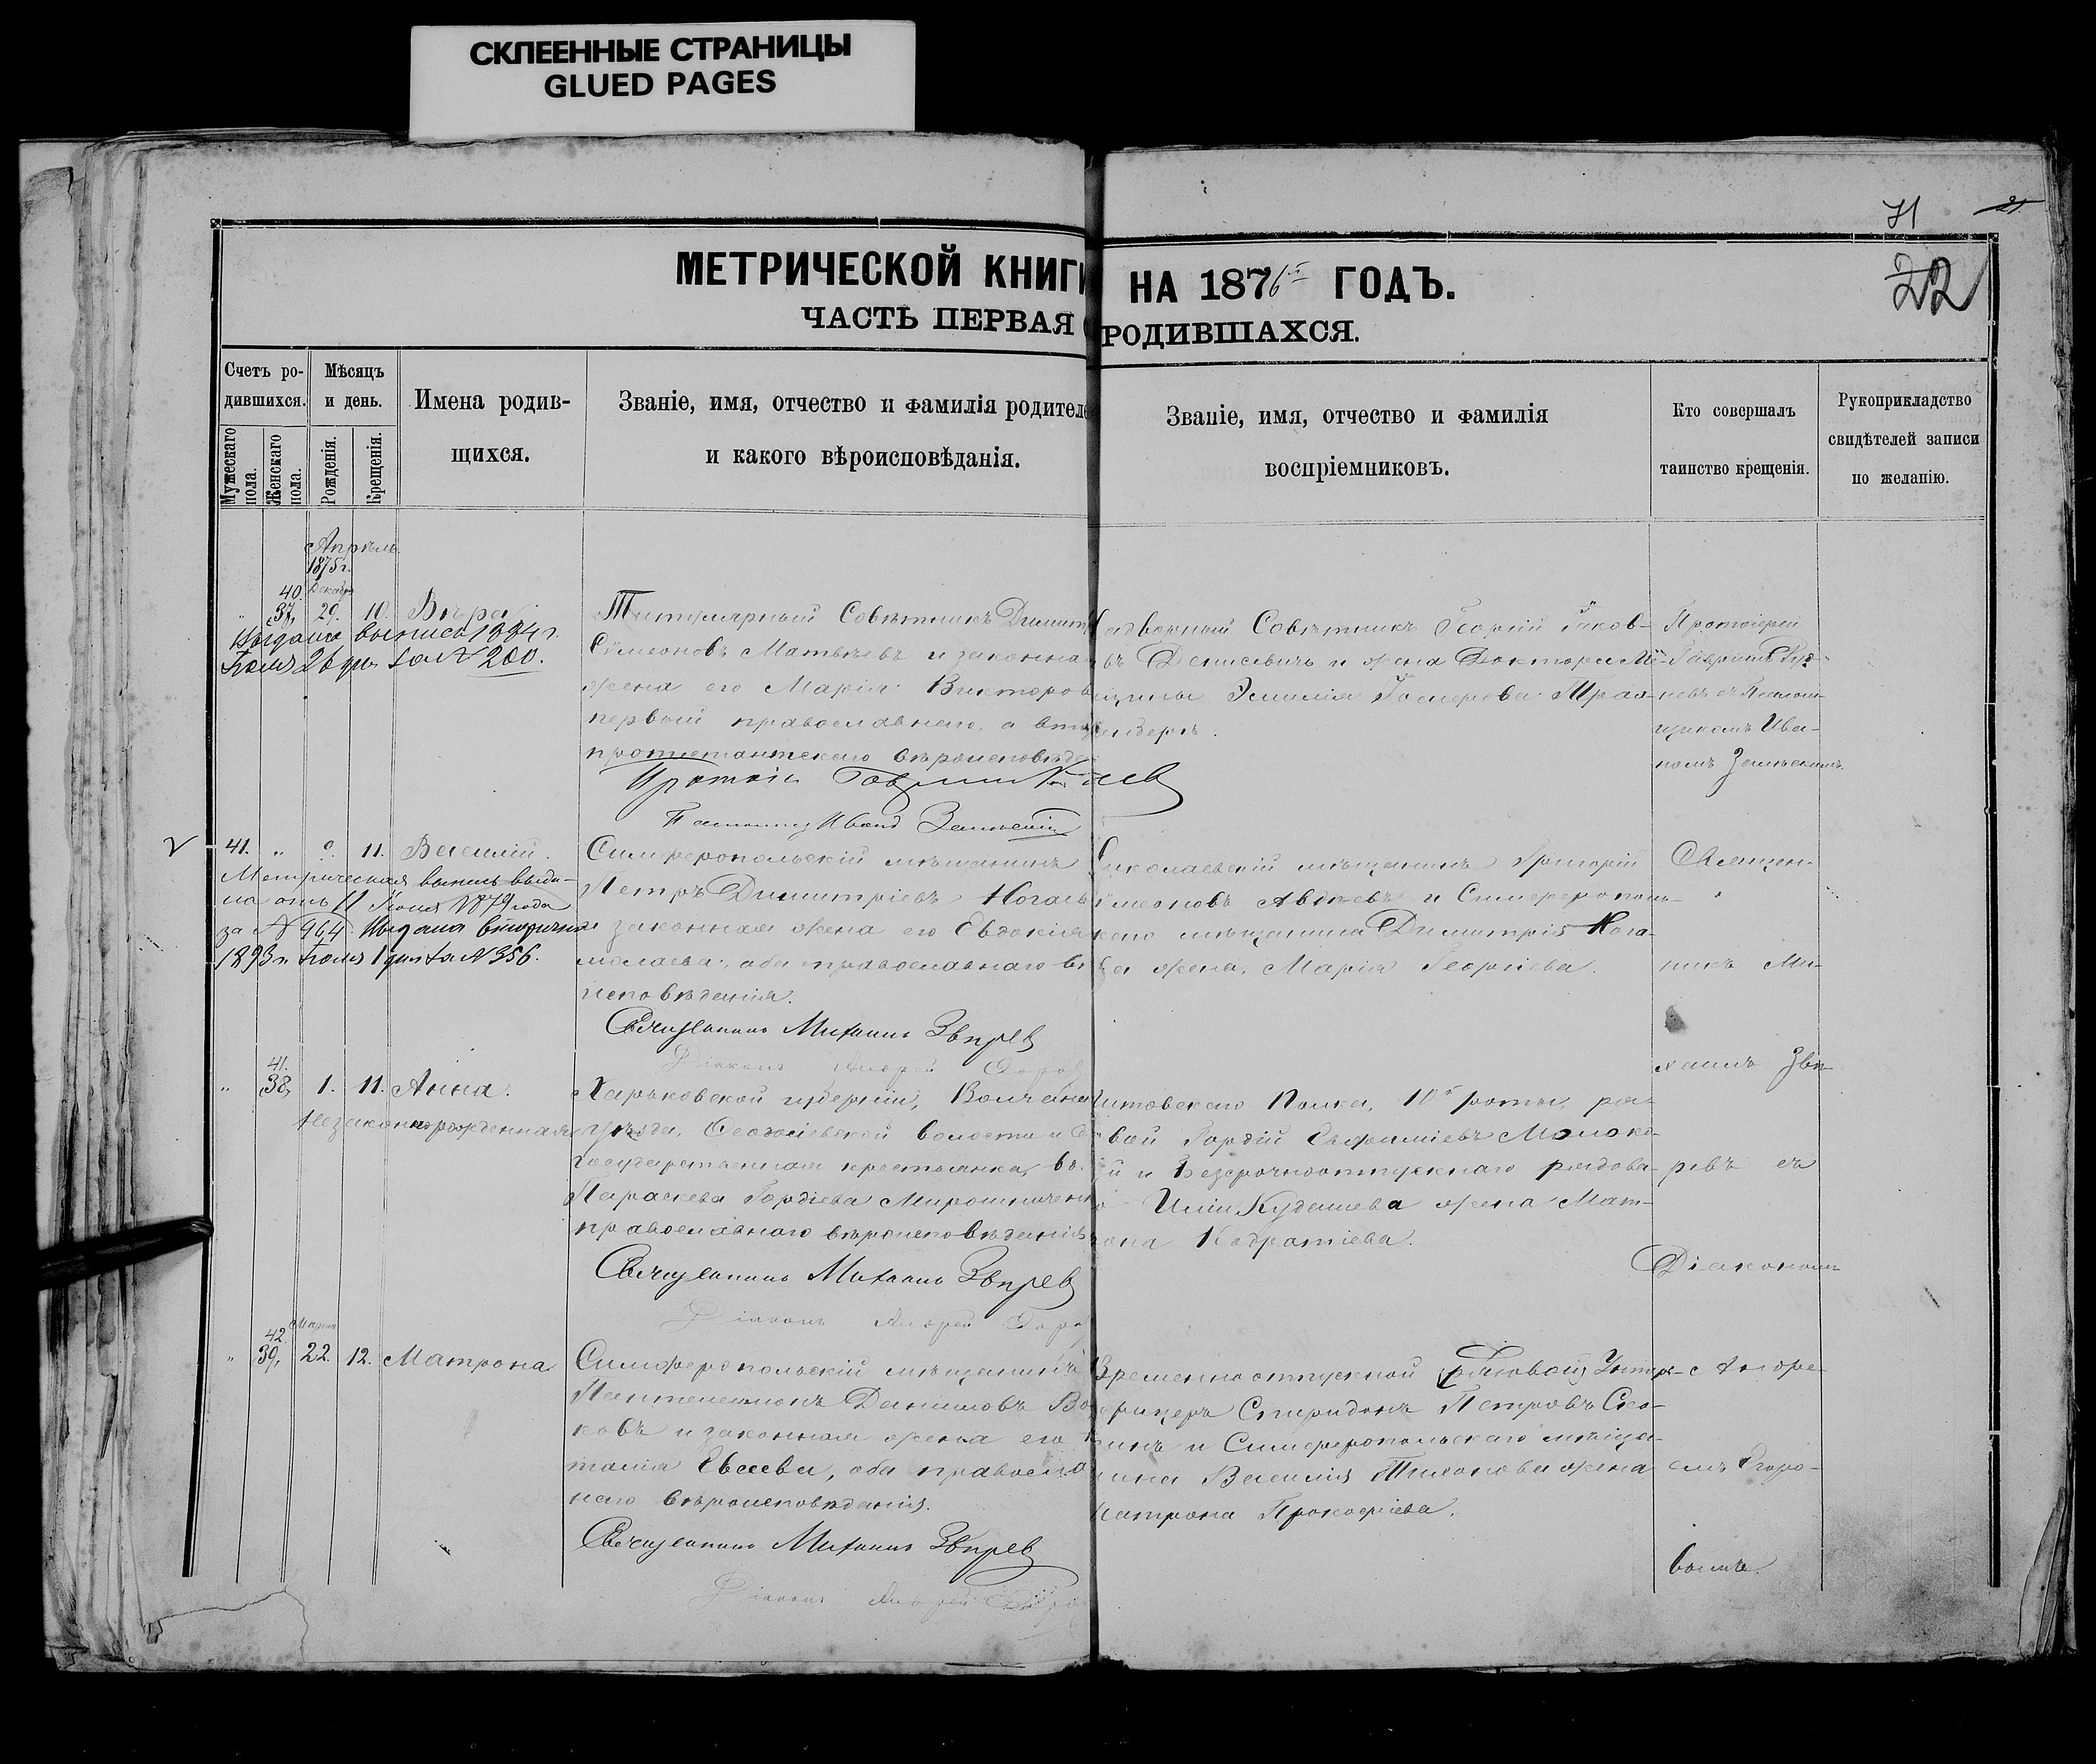 СКЛЕЕННЫЕ СТРАНИЦЫ
GLUED PAGES
71
21.
22
МЕТРИЧЕСКОЙ КНИГИ НА 1876й ГОДЪ.
ЧАСТЬ ПЕРВАЯ РОДИВШАХСЯ.
Счетъ ро-
дившихся.
Мужескаго пола.
Женскаго пола.
Мѣсяцъ
и день.
Рожденія.
Крещенія.
Имена родив-
щихся.
Званіе, имя, отчество и фамилія родителе
и какого вѣроисповѣданія.
Званіе, имя, отчество и фамилія
воспріемниковъ.
Кто совершалъ
таинство крещенія.
Рукоприкладство
свидѣтелей записи
по желанію.
Апрѣль
1875 г.
Декабр
40.
" 37, 29. 10. Вѣра
Выдана выпись 1884 г.
Іюля 26 дня за № 200.
Титулярный Совѣтникъ Димит
Симеоновъ Матвѣевъ и законна
жена его Марія Викторов
первый православнаго, а вто
протестантскаго вѣроисповѣда
адворный Совѣтникъ Георгій Яков-
въ Денисевичъ и жена Доктора Ме-
ицины Эмилія Гомерова
Протоіерей
Гавріилъ
съ Псалом-
щикомъ Ива-
номъ
Иванъ
41. " 11. Василій.
Метрическая выпись выда-
на отъ 11 Іюня 1879 года
за № 964 Выдана вторично
1893 г. Іюля 1 дня за № 356.
Симферопольскій мѣщанинъ
Петръ Димитріевъ Ногаев
и законная жена его Евдокія
оба православнаго вѣ
исповѣданія.
Священникъ Михаилъ Звѣрев
Діаконъ Андрей
иколаевскій мѣщанинъ Григорій
имеоновъ Авдѣевъ и Симферополь-
каго мѣщанина Димитрія Нога-
ва жена, Марія Георгіева.
Священ-
никъ Ми-
хаилъ Звѣ-
41.
" 38, 1. 11. Анна.
Незаконнорожденная
Харьковской губерніи, Волчан
уѣзда, волости и
государственная крестьянка,
Параскева Гордіева Мирошничен
православнаго вѣроисповѣданія
Священникъ Михаилъ Звѣрев
Діаконъ Андрей
итовскаго Полка, 10й роты, ря-
вой Гордій Евфиміевъ Молоко-
й и Безсрочноотпускнаго рядова-
Иліи Кудашева жена Мат-
рона Кодратіева.
ревъ съ
Діакономъ
Марта
42.
" 39, 22. 12. Матрона
Симферопольскій мѣщанинъ
Пантелеимонъ Даниловъ Во
ковъ и законная жена его
талія Евсеева, оба правосла
наго вѣроисповѣданія.
Священникъ Михаилъ Звѣрев
Діаконъ Андрей
Временноотпускной рядовой Унтер-
офицеръ Спиридонъ Петровъ Ско-
инъ и Симферопольскаго мѣща-
нина Василія Тихонова жена
Матрона Прокофіева.
Андре-
емъ Доро-
вымъ.